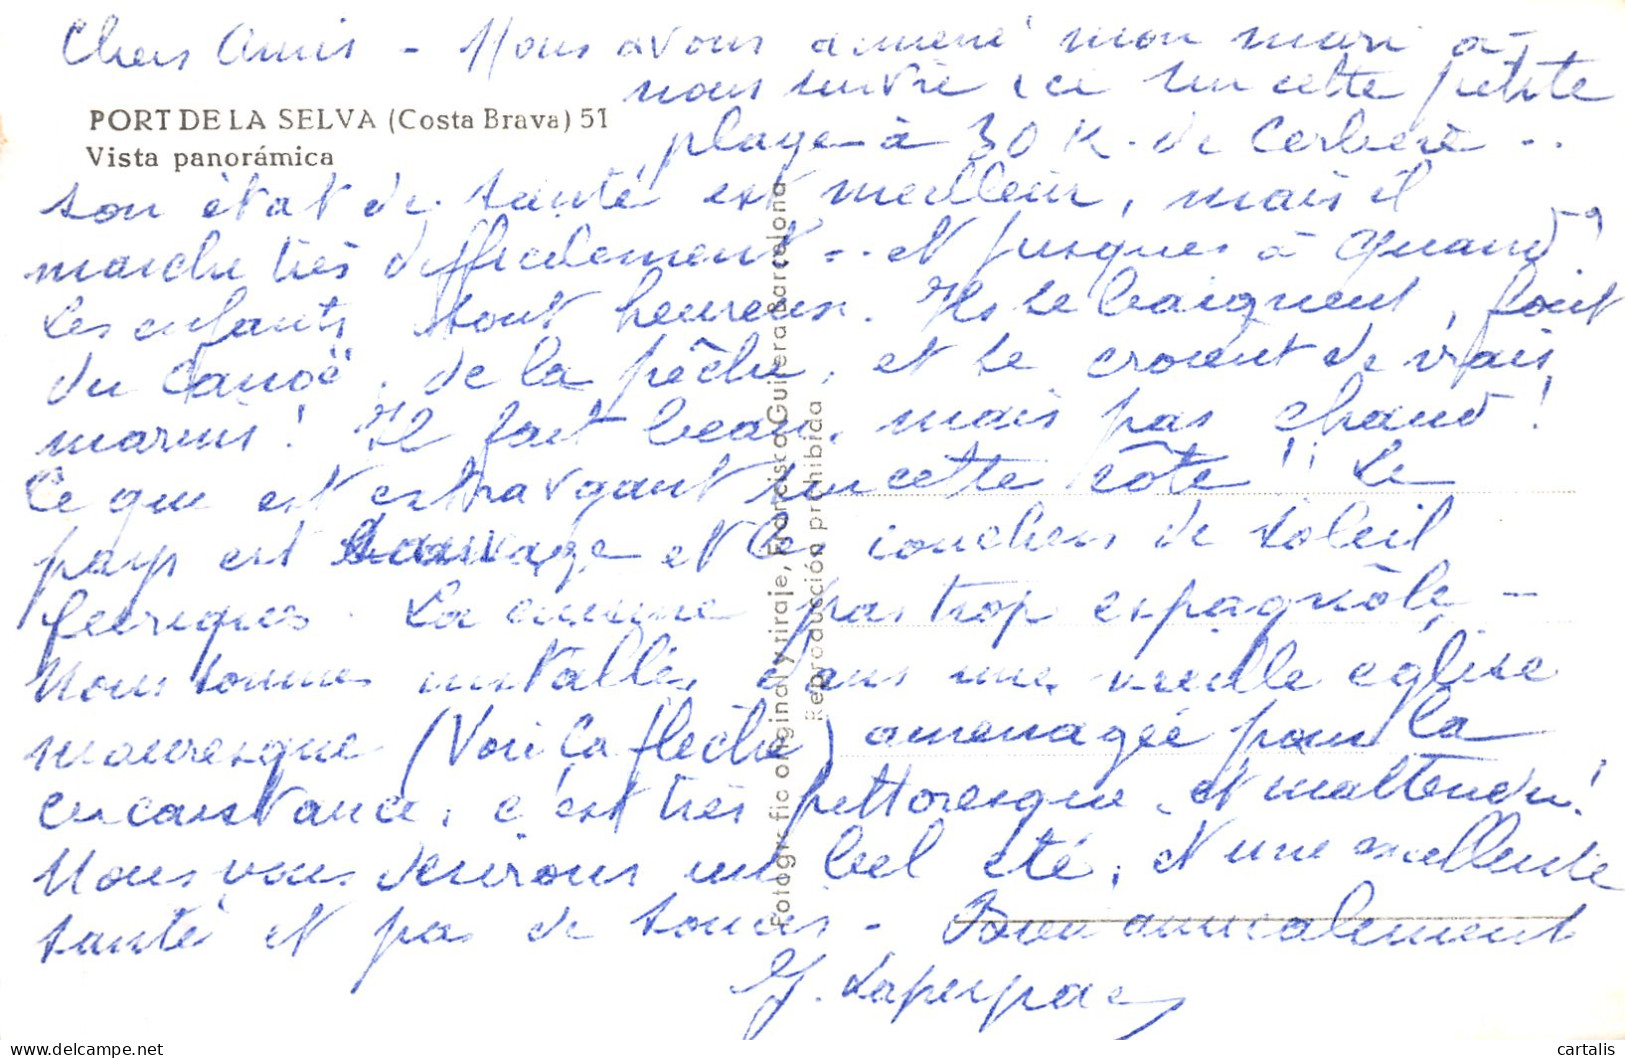 Chers Amis - Nous avons amené mon mari à
nous suivre ici sur cette petite
PORT DE LA SELVA (Costa Brava) 51
Vista panorámica
plage à 30 K. de Cerbère ..
son état de santé est meilleur, mais il
marche très difficilement .. et jusques à quand?
Les enfants sont heureux. Ils se baignent, font
du canoë, de la pêche, et se croient de vrais
marins! Il fait beau, mais pas chaud!
Ce que est extravagant sur cette côte!! Le
pays est sauvage et les couchers de soleil
féeriques. La cuisine pas trop espagnole -
Nous sommes installés dans une vieille église
mauresque (Voir la flèche) aménagée pour la
circonstance, c'est très pittoresque et inattendu!
Nous vous désirons un bel été, et une excellente
santé et pas de soucis - Bien amicalement
Fotografico original y tiraje, Francisco Guillera Barcelona
Reproducción prohibida
cartalis